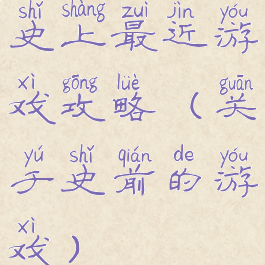 shǐ shàng zuì jìn yóu
史上最近游
xì gōng lüè guān
戏攻略（关
yú shǐ qián de yóu
于史前的游
xì
戏）